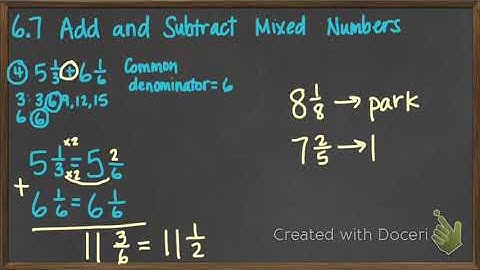 6.7 Add and Subtract Mixed Numbers
④ 5 1/3 + 6 1/6 Common
denominator = 6
3: 3, 6, 9, 12, 15
6 6
5 1/3 ×2 ×2 = 5 2/6
+ 6 1/6 = 6 1/6
11 3/6 = 11 1/2
8 1/8 → park
7 2/5 → 1
Created with Doceri